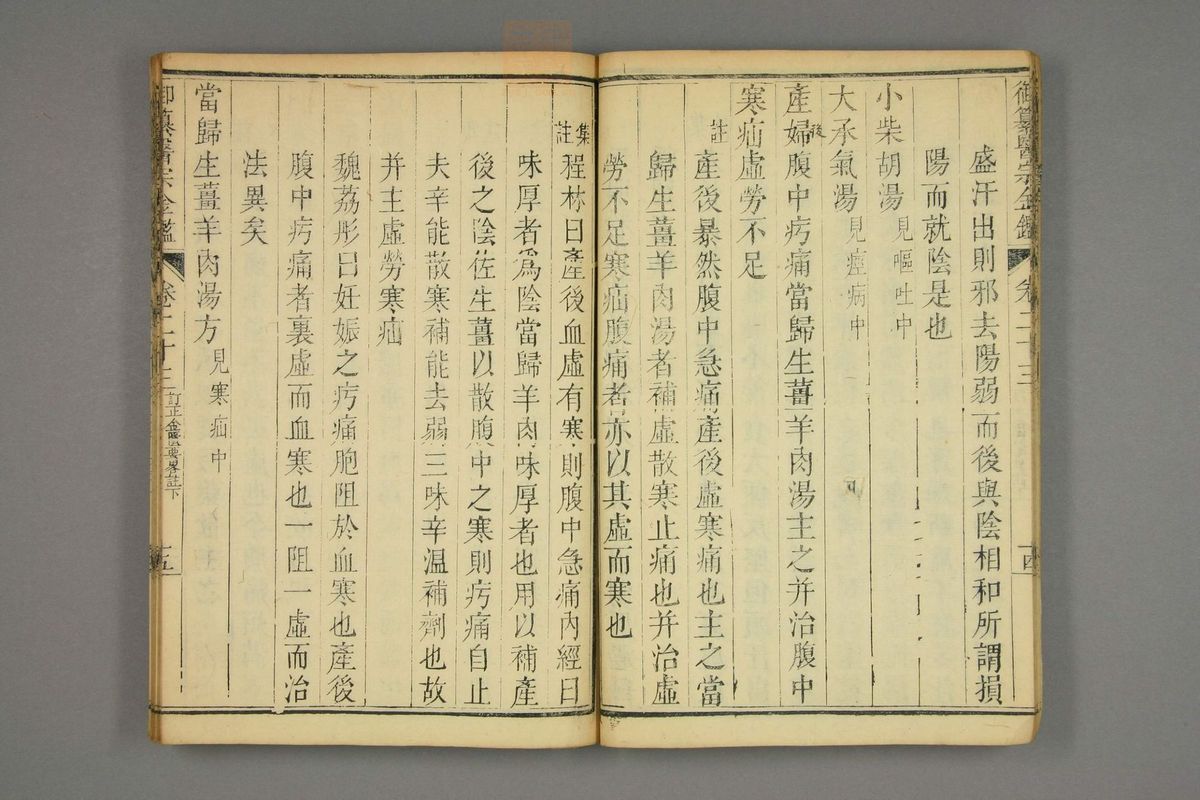 御纂醫宗金鑑 卷二十三 四
盛汗出則邪去陽弱而後與陰相和所謂損
陽而就陰是也
小柴胡湯見嘔吐中
大承氣湯見痙病中
產婦後腹中㽲痛當歸生薑羊肉湯主之并治腹中
寒疝虛勞不足
註產後暴然腹中急痛產後虛寒痛也主之當
歸生薑羊肉湯者補虛散寒止痛也并治虛
勞不足寒疝腹痛者亦以其虛而寒也
集註程林曰產後血虛有寒則腹中急痛內經曰
味厚者爲陰當歸羊肉味厚者也用以補產
後之陰佐生薑以散腹中之寒則㽲痛自止
夫辛能散寒補能去弱三味辛溫補劑也故
并主虛勞寒疝
魏荔彤曰妊娠之㽲痛胞阻於血寒也產後
腹中㽲痛者裏虛而血寒也一阻一虛而治
法異矣
當歸生薑羊肉湯方見寒疝中
御纂醫宗金鑑 卷二十三 訂正金匱要畧註下 五